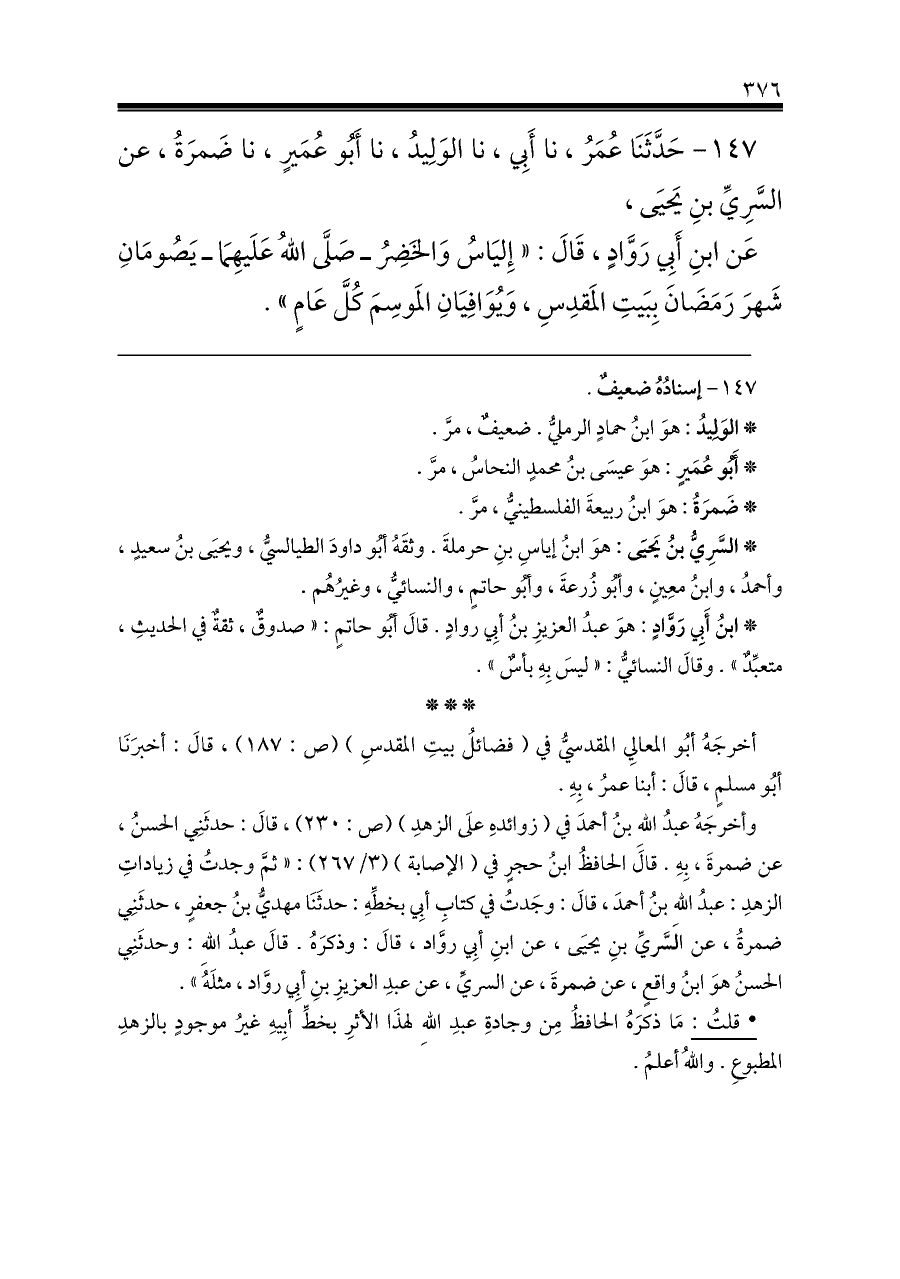 ٣٧٦
١٤٧- حَدَّثَنَا عُمَرُ ، نا أَبِي ، نا الوَلِيدُ ، نا أَبُو عُمَيرٍ ، نا ضَمرَةُ ، عن
السَّرِيِّ بنِ يَحيَى ،
عَن ابنِ أَبِي رَوَّادٍ ، قَالَ : « إِليَاسُ وَالخَضِرُ ـ صَلَّى اللهُ عَلَيهِمَا ـ يَصُومَانِ
شَهرَ رَمَضَانَ بِبَيتِ المَقدِسِ ، وَيُوَافِيَانِ المَوسِمَ كُلَّ عَامٍ » .
١٤٧- إسنادُهُ ضعيفٌ .
* الوَلِيدُ : هوَ ابنُ حمادٍ الرمليُّ . ضعيفٌ ، مرَّ .
* أَبُو عُمَيرٍ : هوَ عيسَى بنُ محمدٍ النحاسُ ، مرَّ .
* ضَمرَةُ : هوَ ابنُ ربيعةَ الفلسطينيُّ ، مرَّ .
* السَّرِيُّ بنُ يَحيَى : هوَ ابنُ إياسِ بنِ حرملةَ . وثقَهُ أبُو داودَ الطيالسيُّ ، ويحيَى بنُ سعيدٍ ،
وأحمدُ ، وابنُ معِينٍ ، وأبُو زُرعةَ ، وأبُو حاتمٍ ، والنسائيُّ ، وغيرُهُم .
* ابنُ أَبِي رَوَّادٍ : هوَ عبدُ العزيزِ بنُ أبِي روادٍ . قالَ أبُو حاتمٍ : « صدوقٌ ، ثقةٌ في الحديثِ ،
متعبِّدٌ » . وقالَ النسائيُّ : « ليسَ بِهِ بأسٌ » .
* * *
أخرجَهُ أبُو المعالِي المقدسيُّ في ( فضائلُ بيتِ المقدسِ ) (ص : ١٨٧) ، قالَ : أخبرَنَا
أبُو مسلمٍ ، قالَ : أبنا عمرُ ، بِهِ .
وأخرجَهُ عبدُ الله بنُ أحمدَ في ( زوائدهِ علَى الزهدِ ) (ص : ٢٣٠) ، قالَ : حدثَنِي الحسنُ ،
عن ضمرةَ ، بِهِ . قالَ الحافظُ ابنُ حجرٍ في ( الإصابة ) (٢٦٧/٣) : « ثمَّ وجدتُ في زياداتِ
الزهدِ : عبدُ اللهِ بنُ أحمدَ ، قالَ : وجَدتُ في كتابِ أبِي بخطِّهِ : حدثَنَا مهديُّ بنُ جعفرٍ ، حدثَنِي
ضمرةُ ، عن السَّريِّ بنِ يحيَى ، عن ابنِ أبي روَّاد ، قالَ : وذكرَهُ . قالَ عبدُ الله : وحدثَنِي
الحسنُ هوَ ابنُ واقعٍ ، عن ضمرةَ ، عن السريِّ ، عن عبدِ العزيزِ بنِ أبِي روَّاد ، مثلَهُ » .
• قلتُ : مَا ذكرَهُ الحافظُ مِن وجادةِ عبدِ اللهِ لهذَا الأثرِ بخطِّ أبِيهِ غيرُ موجودٍ بالزهدِ
المطبوعِ . واللهُ أعلمُ .